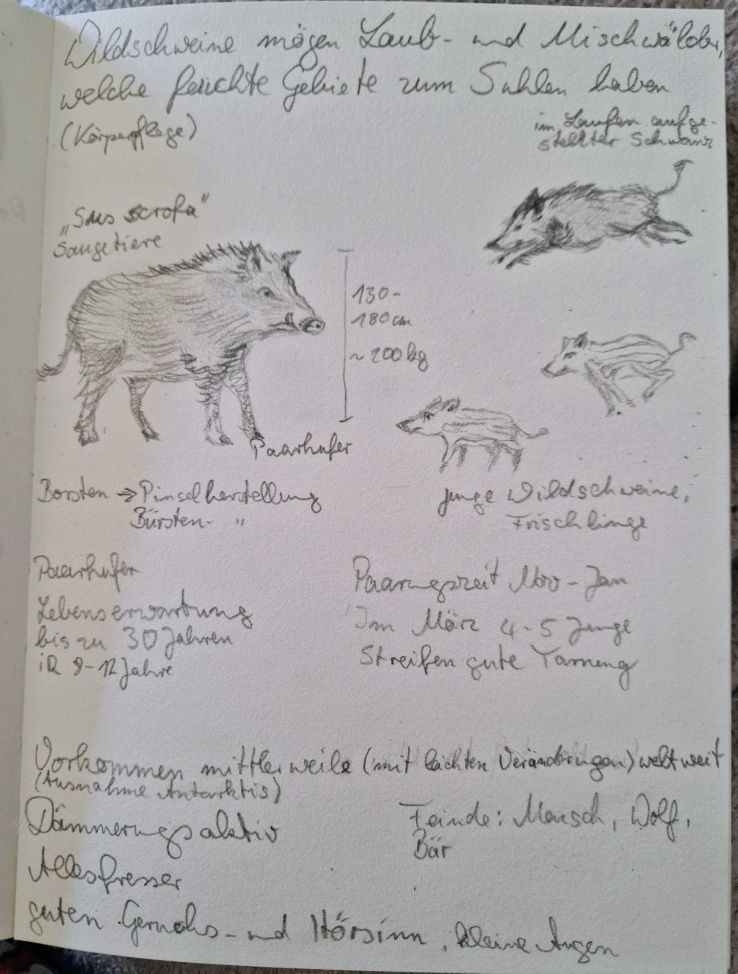 Wildschweine mögen Laub- und Mischwälder,
welche feuchte Gebiete zum Suhlen haben
(Körperpflege)
im Laufen aufge-
stellter Schwanz
„Sus scrofa"
Säugetiere
130-
180 cm
~ 200 kg
Paarhufer
Borsten → Pinselherstellung
Bürsten- "
junge Wildschweine,
Frischlinge
Paarhufer
Lebenserwartung
bis zu 30 Jahren
iR 8-12 Jahre
Paarungszeit Nov - Jan
Im März 4-5 Junge
Streifen gute Tarnung
Vorkommen mittlerweile (mit leichten Veränderungen) weltweit
(Ausnahme Antarktis)
Dämmerungsaktiv
Feinde: Mensch, Wolf,
Bär
Allesfresser
guten Geruchs- und Hörsinn, kleine Augen